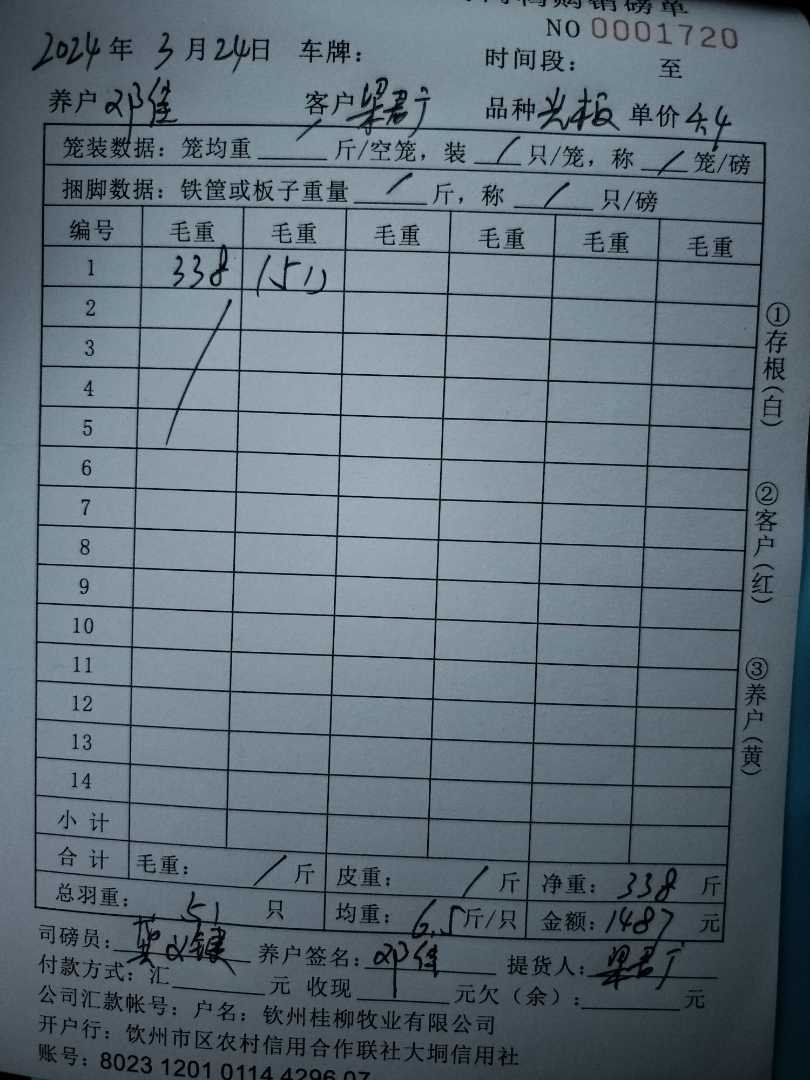 购销磅单
NO 0001720
2024年 3月24日 车牌: 时间段: 至
养户 邓佳 客户 梁君广 品种 光板 单价 4.4
笼装数据: 笼均重 / 斤/空笼, 装 / 只/笼, 称 / 笼/磅
捆脚数据: 铁筐或板子重量 / 斤, 称 / 只/磅
编号 毛重 毛重 毛重 毛重 毛重 毛重
1 338 (51)
2
3
4
5
6
7
8
9
10
11
12
13
14
小计
合计 毛重: / 斤 皮重: / 斤 净重: 338 斤
总羽重: 51 只 均重: 6.5 斤/只 金额: 1487 元
司磅员: 养户签名: 邓佳 提货人: 梁君广
付款方式: 汇 元 收现 元欠(余): 元
公司汇款帐号: 户名: 钦州桂柳牧业有限公司
开户行: 钦州市区农村信用合作联社大垌信用社
账号: 8023 1201 0114 4296 07
①存根(白)
②客户(红)
③养户(黄)